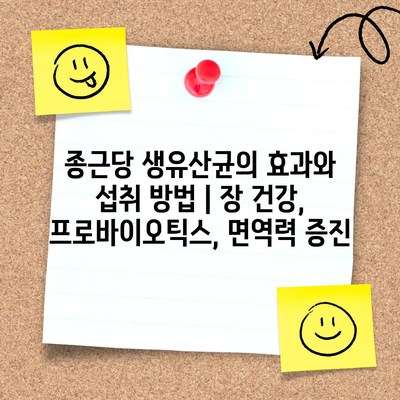 종근당 생유산균의 효과와
섭취 방법 | 장 건강,
프로바이오틱스, 면역력 증진